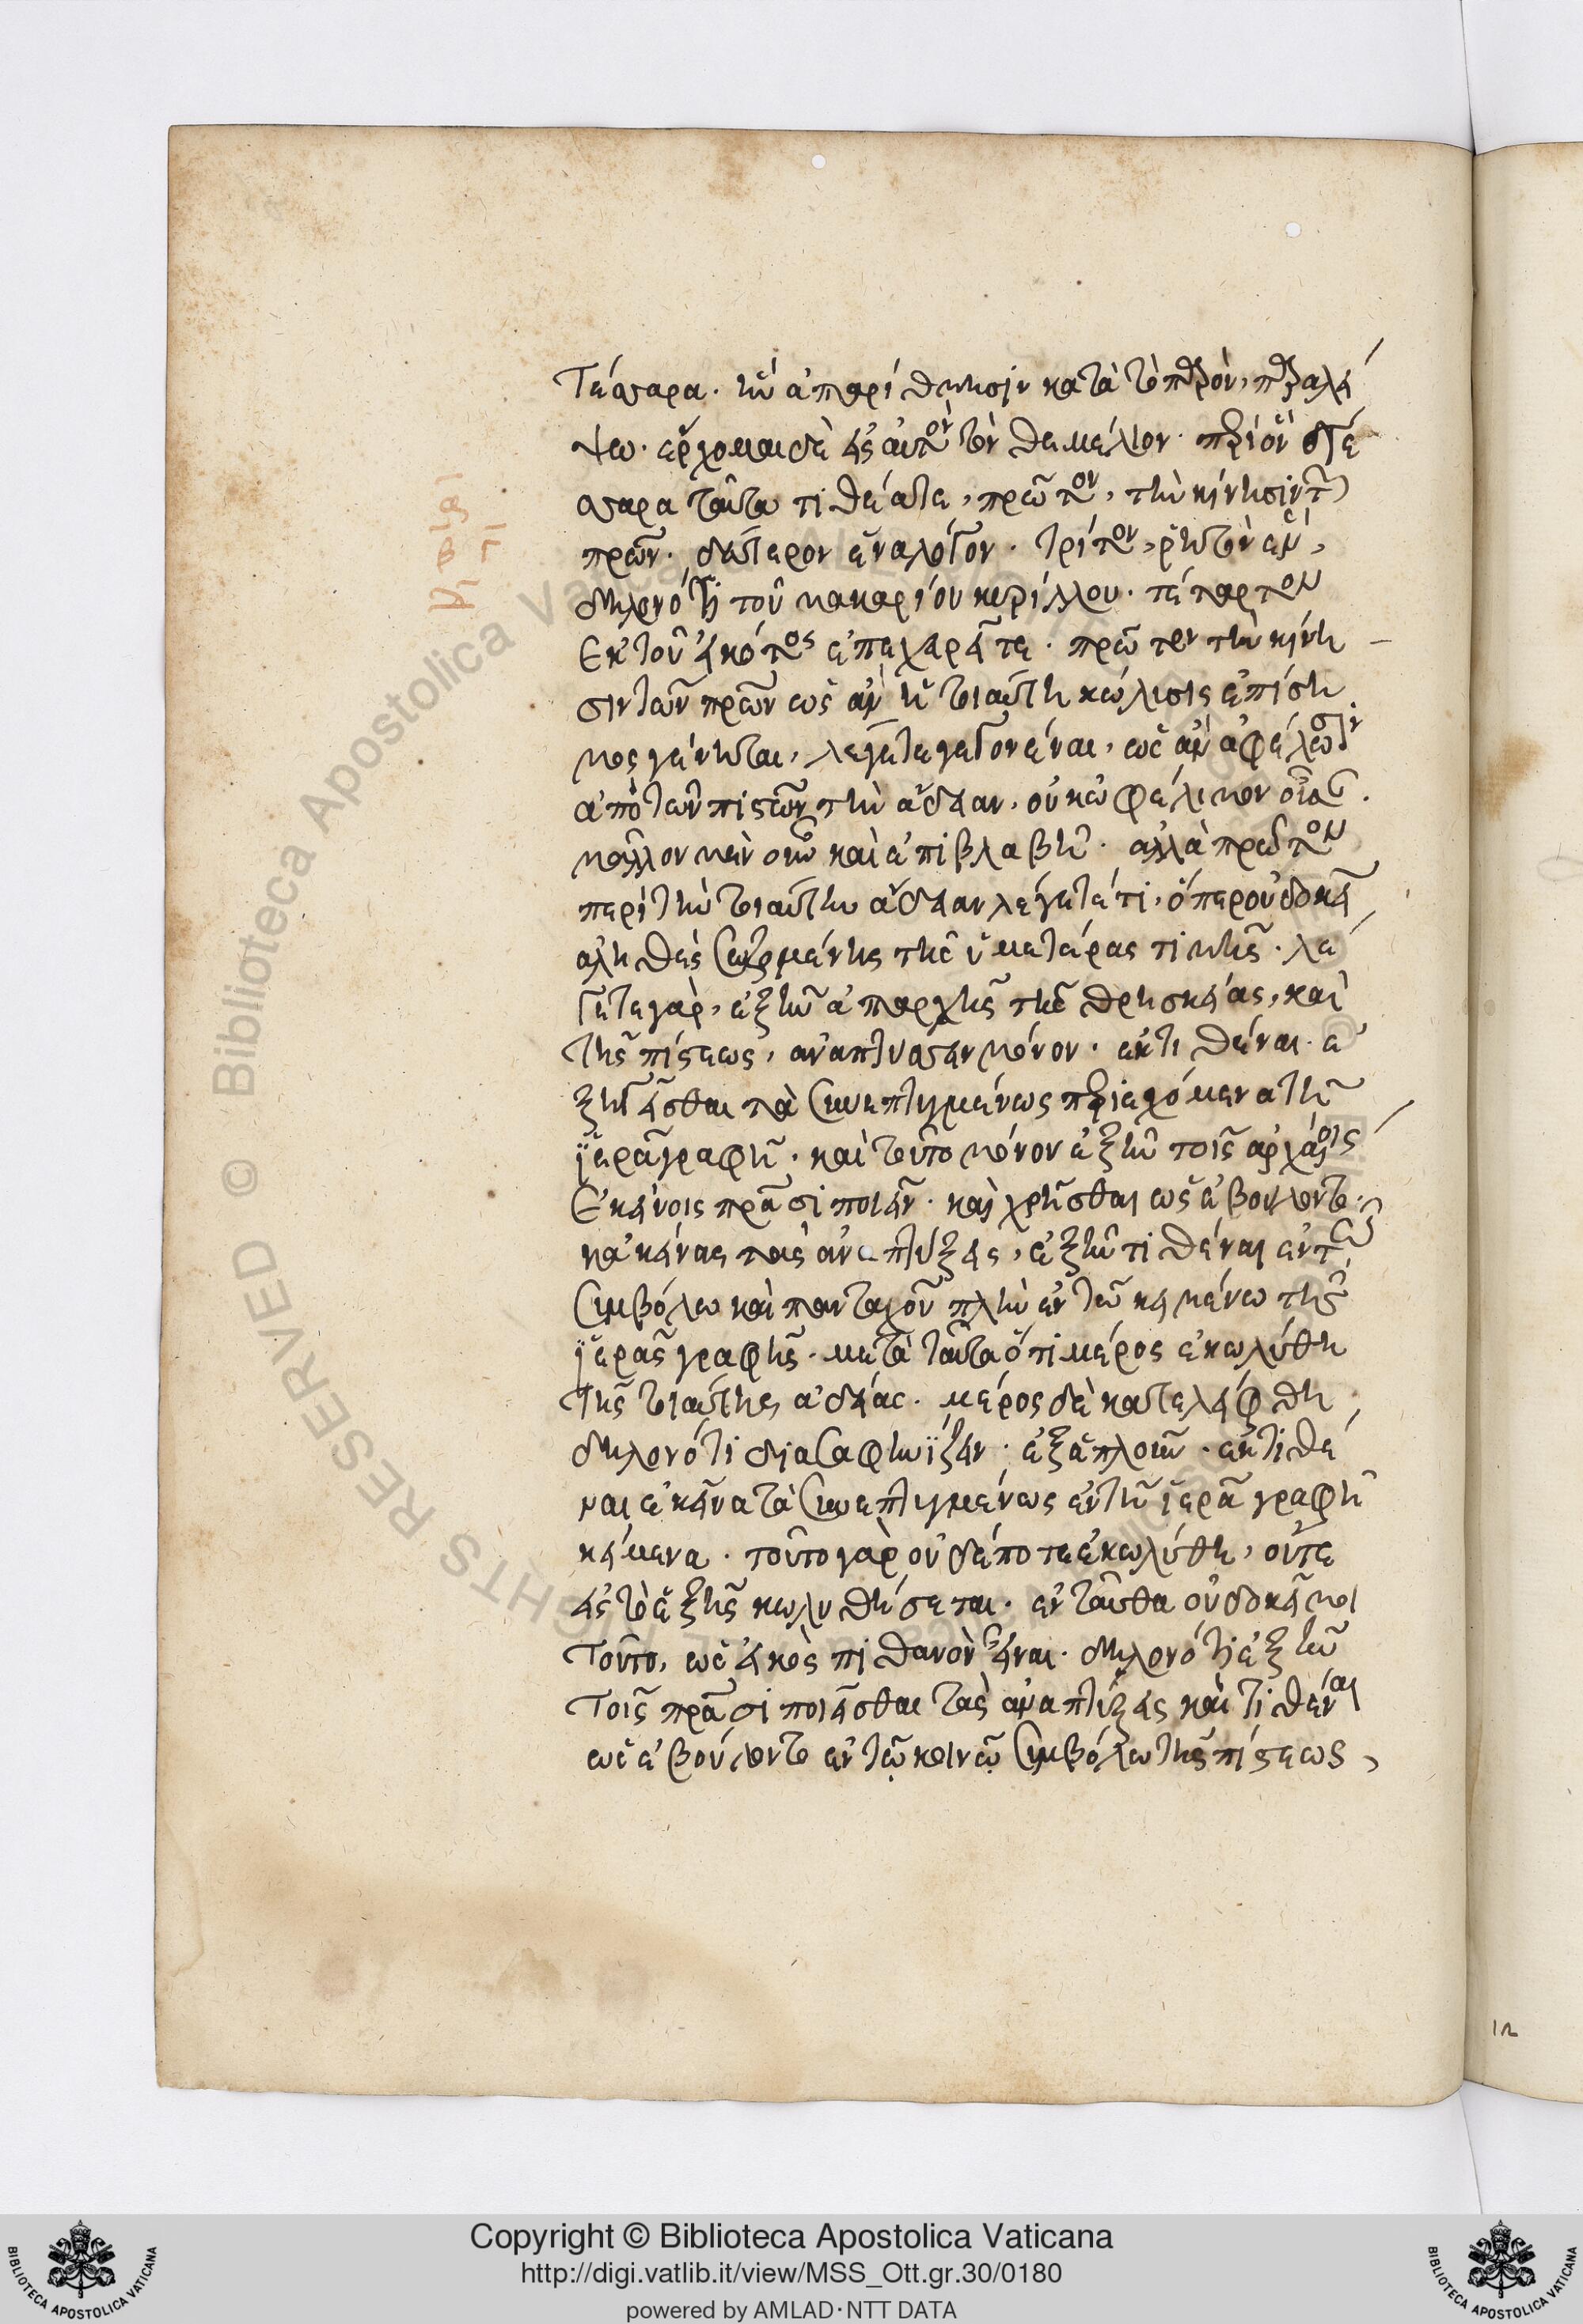 Τέσσαρα. τὴν ἀπαρίθμησιν κατὰ τὸ παρὸν, παραλεί
ψω. ἔρχομαι δὲ εἰς αὐτὸν τὸν θεμέλιον. περὶ ὃν τέ
σσαρα ταῦτα τιθέατε, πρῶτον, τὴν κίνησιν τῶν
πρων. δεύτερον εὔναλόγον. τρίτον, ῥητὸν ἐν,
δηλονότι τοῦ μακαρίου κυρίλλου. τέταρτον
Ἐκ τοῦ εἰκότος ἐπεχειρεῖτε. πρῶτον τὴν κίνη
σιν τῶν πρων ὡς ἂν ἡ τοιαύτη κώλισις ἐπίση
μος γένηται, λέγετε γεγονέναι, ὡς ἂν ἀφέλωσιν
ἀπὸ τῶν πιστῶν τὴν ἄδειαν, οὐκ ὠφέλιμον οὖσαν.
μᾶλλον μὲν οὖν καὶ ἐπιβλαβῆ. ἀλλὰ πρῶτον
περὶ τὴν τοιαύτην ἄδειαν λέγετέ τι, ὅπερ οὐ δοκεῖ
ἀληθὲς σωζομένης τῆς ὑμετέρας τιμῆς. λέ
γετε γὰρ, ἐξῆν ἀπαρχῆς τῆς θρησκείας, καὶ
τῆς πίστεως, ἀναπτύσσειν μόνον. ἐκτιθέναι. ἐ
ξηγεῖσθαι τὰ συνεπτυγμένως περιεχόμενα τῇ
ἱερᾷ γραφῇ. καὶ τοῦτο μόνον ἐξῆν τοῖς ἀρχαίοις
Ἐκείνοις πράσι ποιεῖν. καὶ χρῆσθαι ὡς ἐβούλοντο.
κἀκείνας τὰς ἀναπτύξεις, ἐξῆν τιθέναι ἐν τῷ
συμβόλω καὶ πανταχοῦ πλὴν ἐν τῶ κειμένω τῆς
ἱερᾶς γραφῆς. μετὰ ταῦτα ὅτι μέρος ἐκωλύθη
τῆς τοιαύτης ἀδείας. μέρος δὲ κατελείφθη,
δηλονότι διασαφηνίζειν. ἐξαπλοῖν. ἐκτιθέ
ναι ἐκεῖνα τὰ συνεπτυγμένως ἐν τῇ ἱερᾷ γραφῇ
κείμενα. τοῦτο γὰρ οὐδέποτε ἐκωλύθη, οὔτε
εἰς τὸ ἑξῆς κωλυθήσεται. ἐνταῦθα οὐ δοκεῖ μοι
Τοῦτο, ὡς εἰκὸς πιθανὸν εἶναι. δηλονότι ἐξῆν
Τοῖς πράσι ποιεῖσθαι τὰς ἀναπτύξεις καὶ τιθέναι
ὡς ἐβούλοντο ἐν τῷ κοινῷ συμβόλω τῆς πίστεως,
12
Copyright © Biblioteca Apostolica Vaticana
http://digi.vatlib.it/view/MSS_Ott.gr.30/0180
powered by AMLAD·NTT DATA